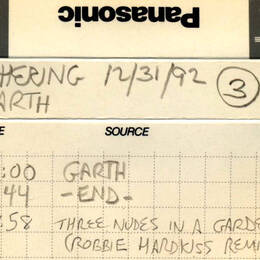 Panasonic
HERING 12/31/92 3
ARTH
E SOURCE
:00 GARTH
:44 -END-
:58 THREE NUDES IN A GARDE
(ROBBIE HARDKISS REMI